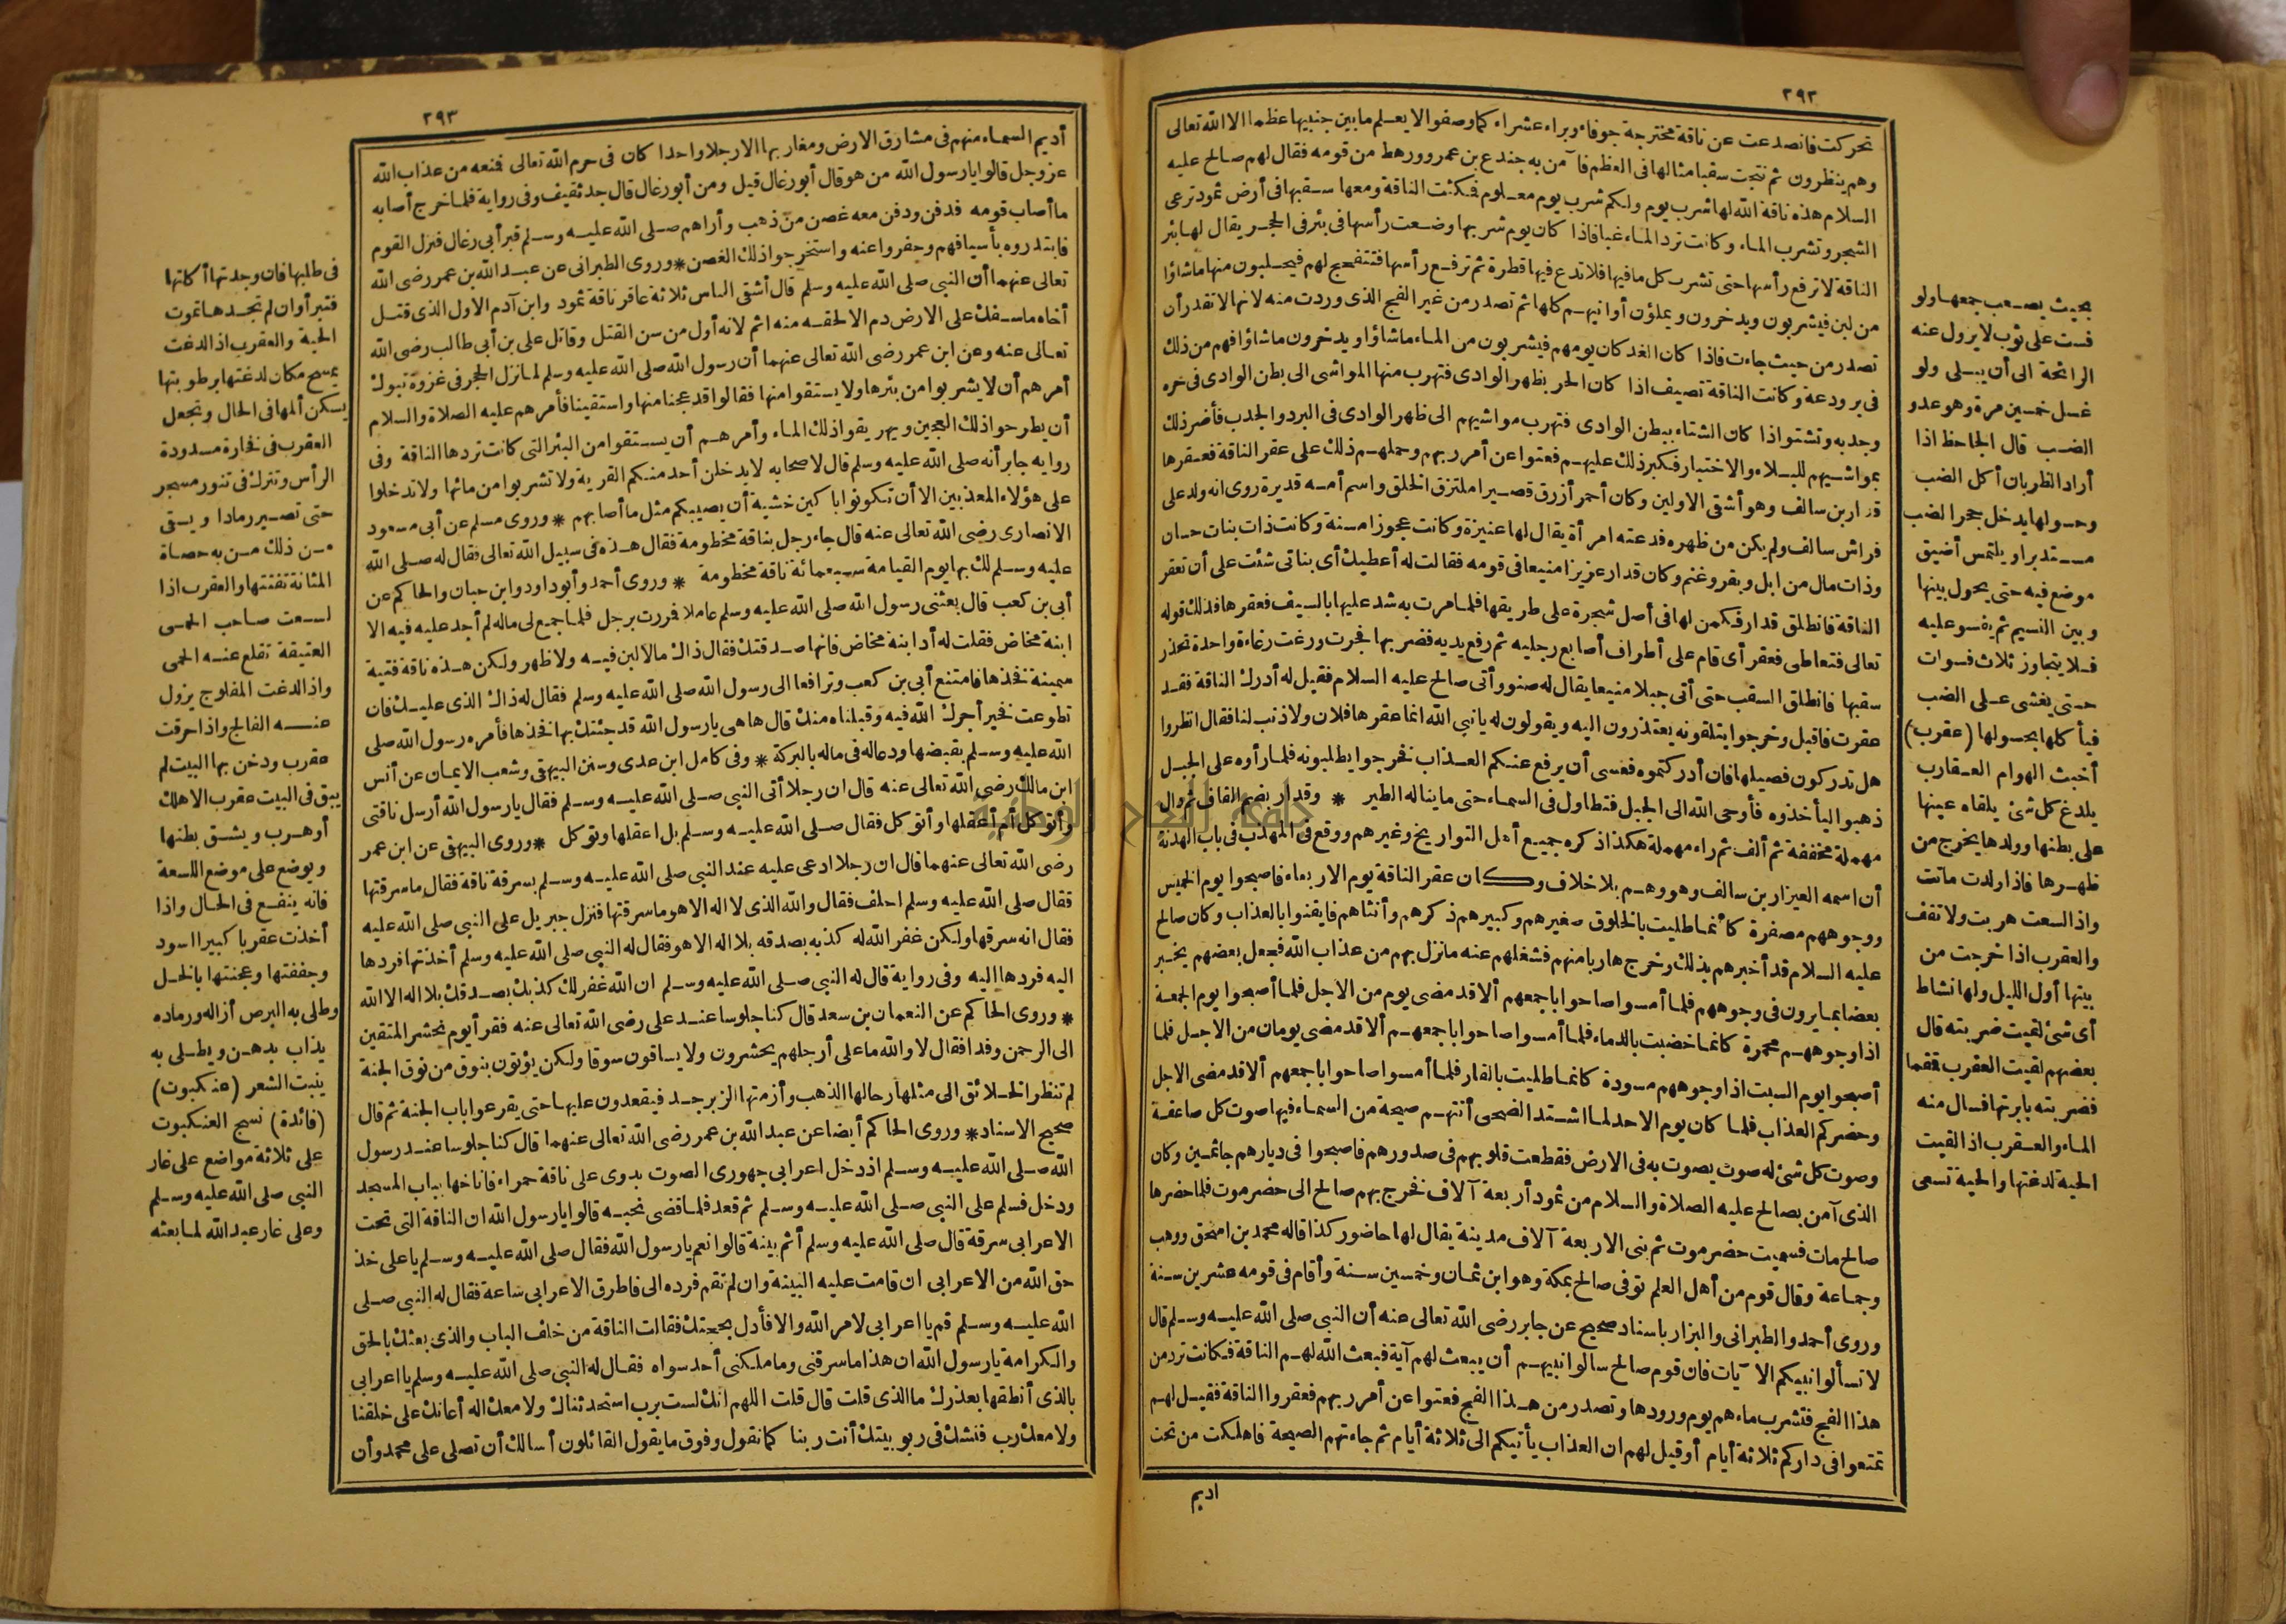 ٢٩٢
تحركت فانصدعت عن ناقة مخترجة جوفاء وبراء عشراء كما وصفوا لا يعلم ما بين جنبيها عظما الا الله تعالى
وهم ينظرون ثم نتجت سقبا مثالها فى العظم فآمن به جندع بن عمرو ورهط من قومه فقال لهم صالح عليه
السلام هذه ناقة الله لها شرب يوم ولكم شرب يوم معلوم فمكثت الناقة ومعها سقبها فى أرض ثمود ترعى
الشجر وتشرب الماء وكانت ترد الماء غبا فاذا كان يوم شربها وضعت رأسها فى بئر فى الحجر يقال لها بئر
الناقة لا ترفع رأسها حتى تشرب كل ما فيها فلا تدع فيها قطرة ثم ترفع رأسها فتتفحج لهم فيحلبون منها ماشاؤا
من لبن فيشربون ويدخرون ويملؤن أوانيهم كلها ثم تصدر من غير الفج الذى وردت منه لانها لا تقدر أن
تصدر من حيث جاءت فاذا كان الغد كان يومهم فيشربون من الماء ماشاؤا ويدخرون ماشاؤا فهم من ذلك
فى بر ودعة وكانت الناقة تصيف اذا كان الحر بظهر الوادى فتهرب منها المواشى الى بطن الوادى فى حره
وجدبه وتشتو اذا كان الشتاء ببطن الوادى فتهرب مواشيهم الى ظهر الوادى فى البرد والجدب فأضر ذلك
بمواشيهم للبلاء والاختبار فكبر ذلك عليهم فعتوا عن أمر ربهم وحملهم ذلك على عقر الناقة فعقرها
قدار بن سالف وهو أشقى الاولين وكان أحمر أزرق قصيرا ملتزق الخلق واسم أمه قديرة روى انه ولد على
فراش سالف ولم يكن من ظهره فدعته امرأة يقال لها عنيزة وكانت عجوزا مسنة وكانت ذات بنات حسان
وذات مال من ابل وبقر وغنم وكان قدار عزيزا منيعا فى قومه فقالت له أعطيك أى بناتى شئت على أن تعقر
الناقة فانطلق قدار فكمن لها فى أصل شجرة على طريقها فلما مرت به شد عليها بالسيف فعقرها فذلك قوله
تعالى فتعاطى فعقر أى قام على أطراف أصابع رجليه ثم رفع يديه فضربها فخرت ورغت رغاءة واحدة تحذر
سقبها فانطلق السقب حتى أتى جبلا منيعا يقال له صنو وأتى صالح عليه السلام فقيل له أدرك الناقة فقد
عقرت فاقبل وخرجوا يتلقونه يعتذرون اليه ويقولون له يا نبى الله انما عقرها فلان ولا ذنب لنا فقال انظروا
هل تدركون فصيلها فان أدركتموه فعسى أن يرفع عنكم العذاب فخرجوا يطلبونه فلما رأوه على الجبل
ذهبوا ليأخذوه فأوحى الله الى الجبل فتطاول فى السماء حتى ما يناله الطير * وقدار بضم القاف ثم دال
مهملة مخففة ثم ألف ثم راء مهملة هكذا ذكره جميع أهل التواريخ وغيرهم ووقع فى المهذب فى باب الهدنة
أن اسمه العيزار بن سالف وهو وهم بلا خلاف وكان عقر الناقة يوم الاربعاء فاصبحوا يوم الخميس
ووجوههم مصفرة كأنما طليت بالخلوق صغيرهم وكبيرهم ذكرهم وأنثاهم فايقنوا بالعذاب وكان صالح
عليه السلام قد أخبرهم بذلك وخرج هاربا منهم فشغلهم عنه ما نزل بهم من عذاب الله فجعل بعضهم يخبر
بعضا بما يرون فى وجوههم فلما أمسوا صاحوا باجمعهم ألا قد مضى يوم من الاجل فلما أصبحوا يوم الجمعة
اذا وجوههم محمرة كانما خضبت بالدماء فلما أمسوا صاحوا باجمعهم ألا قد مضى يومان من الاجل فلما
أصبحوا يوم السبت اذا وجوههم مسودة كانما طليت بالقار فلما أمسوا صاحوا باجمعهم ألا قد مضى الاجل
وحضركم العذاب فلما كان يوم الاحد لما اشتد الضحى أتتهم صيحة من السماء فيها صوت كل صاعقة
وصوت كل شئ له صوت يصوت به فى الارض فقطعت قلوبهم فى صدورهم فاصبحوا فى ديارهم جاثمين وكان
الذى آمن بصالح عليه الصلاة والسلام من ثمود أربعة آلاف فخرج بهم صالح الى حضرموت فلما حضرها
صالح مات فسميت حضرموت ثم بنى الاربعة آلاف مدينة يقال لها حاضور كذا قاله محمد بن اسحق ووهب
وجماعة وقال قوم من أهل العلم توفى صالح بمكة وهو ابن ثمان وخمسين سنة وأقام فى قومه عشرين سنة
وروى أحمد والطبرانى والبزار باسناد صحيح عن جابر رضى الله تعالى عنه أن النبى صلى الله عليه وسلم قال
لا تسألوا نبيكم الآيات فان قوم صالح سالوا نبيهم أن يبعث لهم آية فبعث الله لهم الناقة فكانت ترد من
هذا الفج فتشرب ماءهم يوم ورودها وتصدر من هذا الفج فعتوا عن أمر ربهم فعقروا الناقة فقيل لهم
تمتعوا فى داركم ثلاثة أيام أو قيل لهم ان العذاب يأتيكم الى ثلاثة أيام ثم جاءتهم الصيحة فاهلكت من تحت
اديم
بحيث يصعب جمعها ولو
فست على ثوب لا يزول عنه
الرائحة الى أن يبلى ولو
غسل خمسين مرة وهو عدو
الضب قال الجاحظ اذا
أراد الظربان أكل الضب
وحسولها يدخل جحر الضب
مستدبرا ويلتمس أضيق
موضع فيه حتى يحول بينها
وبين النسيم ثم يفسو عليه
فلا يتجاوز ثلاث فسوات
حتى يغشى على الضب
فيأكلها بحسولها (عقرب)
أخبث الهوام العقارب
يلدغ كل شئ يلقاه عينها
على بطنها وولدها يخرج من
ظهرها فاذا ولدت ماتت
واذا لسعت هربت ولا تقف
والعقرب اذا خرجت من
بيتها أول الليل ولها نشاط
أى شئ لقيت ضربته قال
بعضهم لقيت العقرب قمقما
فضربته بابرتها فسال منه
الماء والعقرب اذا لقيت
الحية لدغتها والحية تسعى
٢٩٣
أديم السماء منهم فى مشارق الارض ومغاربها الا رجلا واحدا كان فى حرم الله تعالى فمنعه من عذاب الله
عز وجل قالوا يا رسول الله من هو قال أبو رغال قيل ومن أبو رغال قال جد ثقيف وفى رواية فلما خرج أصابه
ما أصاب قومه فدفن ودفن معه غصن من ذهب وأراهم صلى الله عليه وسلم قبر أبى رغال فنزل القوم
فابتدروه بأسيافهم وحفروا عنه واستخرجوا ذلك الغصن * وروى الطبرانى عن عبد الله بن عمر رضى الله
تعالى عنهما أن النبى صلى الله عليه وسلم قال أشقى الناس ثلاثة عاقر ناقة ثمود وابن آدم الاول الذى قتل
أخاه ما سفك على الارض دم الا لحقه منه اثم لانه أول من سن القتل وقاتل على بن أبى طالب رضى الله
تعالى عنه وعن ابن عمر رضى الله تعالى عنهما أن رسول الله صلى الله عليه وسلم لما نزل الحجر فى غزوة تبوك
أمرهم أن لا يشربوا من بئرها ولا يستقوا منها فقالوا قد عجنا منها واستقينا فأمرهم عليه الصلاة والسلام
أن يطرحوا ذلك العجين ويهريقوا ذلك الماء وأمرهم أن يستقوا من البئر التى كانت تردها الناقة وفى
رواية جابر أنه صلى الله عليه وسلم قال لاصحابه لا يدخلن أحد منكم القرية ولا تشربوا من مائها ولا تدخلوا
على هؤلاء المعذبين الا أن تكونوا باكين خشية أن يصيبكم مثل ما أصابهم * وروى مسلم عن أبى مسعود
الانصارى رضى الله تعالى عنه قال جاء رجل بناقة مخطومة فقال هذه فى سبيل الله تعالى فقال له صلى الله
عليه وسلم لك بها يوم القيامة سبعمائة ناقة مخطومة * وروى أحمد وأبو داود وابن حبان والحاكم عن
أبى بن كعب قال بعثنى رسول الله صلى الله عليه وسلم عاملا فمررت برجل فلما جمع لى ماله لم أجد عليه فيه الا
ابنة مخاض فقلت له أد ابنة مخاض فانها صدقتك فقال ذاك ما لا لبن فيه ولا ظهر ولكن هذه ناقة فتية
سمينة فخذها فامتنع أبى بن كعب وترافعا الى رسول الله صلى الله عليه وسلم فقال له ذاك الذى عليك فان
تطوعت بخير أجرك الله فيه وقبلناه منك قال ها هى يا رسول الله قد جئتك بها فخذها فأمره رسول الله صلى
الله عليه وسلم بقبضها ودعا له فى ماله بالبركة * وفى كامل ابن عدى وسنن البيهقى وشعب الايمان عن أنس
ابن مالك رضى الله تعالى عنه قال ان رجلا أتى النبى صلى الله عليه وسلم فقال يا رسول الله أرسل ناقتى
وأتوكل أم أعقلها وأتوكل فقال صلى الله عليه وسلم بل اعقلها وتوكل * وروى البيهقى عن ابن عمر
رضى الله تعالى عنهما قال ان رجلا ادعى عليه عند النبى صلى الله عليه وسلم بسرقة ناقة فقال ما سرقتها
فقال صلى الله عليه وسلم احلف فقال والله الذى لا اله الا هو ما سرقتها فنزل جبريل على النبى صلى الله عليه
فقال انه سرقها ولكن غفر الله له كذبه بصدقه بلا اله الا هو فقال له النبى صلى الله عليه وسلم أخذتها فردها
اليه فردها اليه وفى رواية قال له النبى صلى الله عليه وسلم ان الله غفر لك كذبك بصدقك بلا اله الا الله
* وروى الحاكم عن النعمان بن سعد قال كنا جلوسا عند على رضى الله تعالى عنه فقرأ يوم نحشر المتقين
الى الرحمن وفدا فقال لا والله ما على أرجلهم يحشرون ولا يساقون سوقا ولكن يؤتون بنوق من نوق الجنة
لم تنظر الخلائق الى مثلها رحالها الذهب وأزمتها الزبرجد فيقعدون عليها حتى يقرعوا باب الجنة ثم قال
صحيح الاسناد * وروى الحاكم أيضا عن عبد الله بن عمر رضى الله تعالى عنهما قال كنا جلوسا عند رسول
الله صلى الله عليه وسلم اذ دخل اعرابى جهورى الصوت بدوى على ناقة حمراء فاناخها بباب المسجد
ودخل فسلم على النبى صلى الله عليه وسلم ثم قعد فلما قضى نحبه قالوا يا رسول الله ان الناقة التى تحت
الاعرابى سرقة قال صلى الله عليه وسلم أثم بينة قالوا نعم يا رسول الله فقال صلى الله عليه وسلم يا على خذ
حق الله من الاعرابى ان قامت عليه البينة وان لم تقم فرده الى فاطرق الاعرابى ساعة فقال له النبى صلى
الله عليه وسلم قم يا اعرابى لامر الله والا فأدل بحجتك فقالت الناقة من خلف الباب والذى بعثك بالحق
والكرامة يا رسول الله ان هذا ما سرقنى وما ملكنى أحد سواه فقال له النبى صلى الله عليه وسلم يا اعرابى
بالذى أنطقها بعذرك ما الذى قلت قال قلت اللهم انك لست برب استحدثناك ولا معك اله أعانك على خلقنا
ولا معك رب فنشك فى ربوبيتك أنت ربنا كما نقول وفوق ما يقول القائلون أسالك أن تصلى على محمد وأن
فى طلبها فان وجدتها أكلتها
فتبرأ وان لم تجدها تموت
الحية والعقرب اذا لدغت
يمسح مكان لدغتها برطوبتها
يسكن ألمها فى الحال وتجعل
العقرب فى فخارة مسدودة
الرأس وتترك فى تنور مسجر
حتى تصير رمادا ويسقى
من ذلك من به حصاة
المثانة تفتتها والعقرب اذا
لسعت صاحب الحمى
العتيقة تقلع عنه الحمى
واذا لدغت المفلوج يزول
عنه الفالج واذا حرقت
عقرب ودخن بها البيت لم
يبق فى البيت عقرب الا هلك
أو هرب ويشق بطنها
ويوضع على موضع اللسعة
فانه ينفع فى الحال واذا
أخذت عقربا كبيرا اسود
وجففتها وعجنتها بالخل
وطلى به البرص أزاله ورماده
يذاب بدهن ويطلى به
ينبت الشعر (عنكبوت)
(فائدة) نسج العنكبوت
على ثلاثة مواضع على غار
النبى صلى الله عليه وسلم
وعلى غار عبد الله لما بعثه